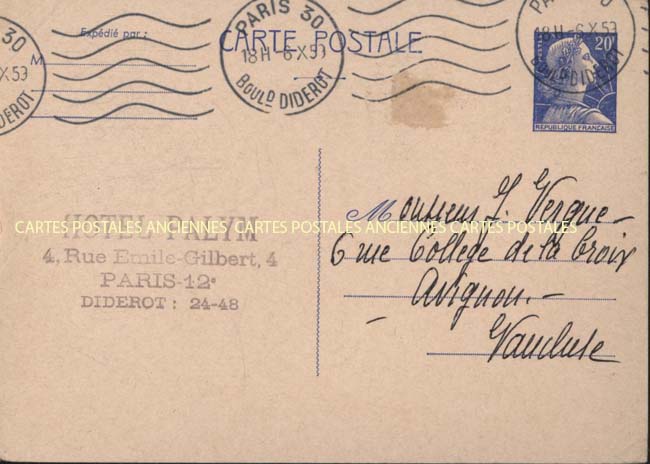 PARIS 30
18H -6 X 59
BOULD DIDEROT
Expédié par :
M
CARTE POSTALE
PARIS 30
18H -6 X 59
BOULD DIDEROT
POSTES
20F
REPUBLIQUE FRANÇAISE
HOTEL PALYM
4, Rue Emile-Gilbert, 4
PARIS-12e
DIDEROT : 24-48
CARTES POSTALES ANCIENNES CARTES POSTALES ANCIENNES CARTES POSTALES ANCIENNES
Monsieur J. Vergue -
6 rue Collège de la Croix
Avignon. -
Vaucluse